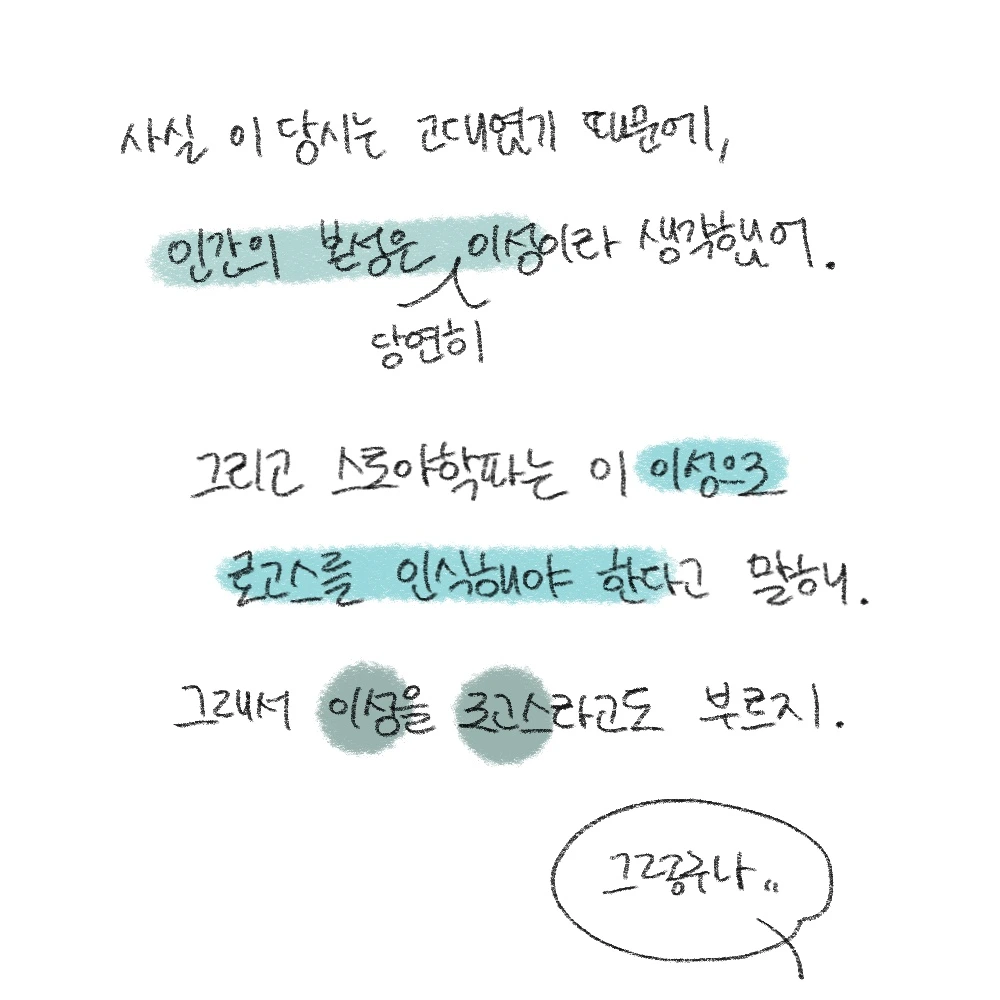 사실 이 당시는 고대였기 때문에,
인간의 본성은 이성이라 생각했어.
당연히
그리고 스토아학파는 이 이성으로
로고스를 인식해야 한다고 말해.
그래서 이성을 로고스라고도 부르지.
그르쿠나..